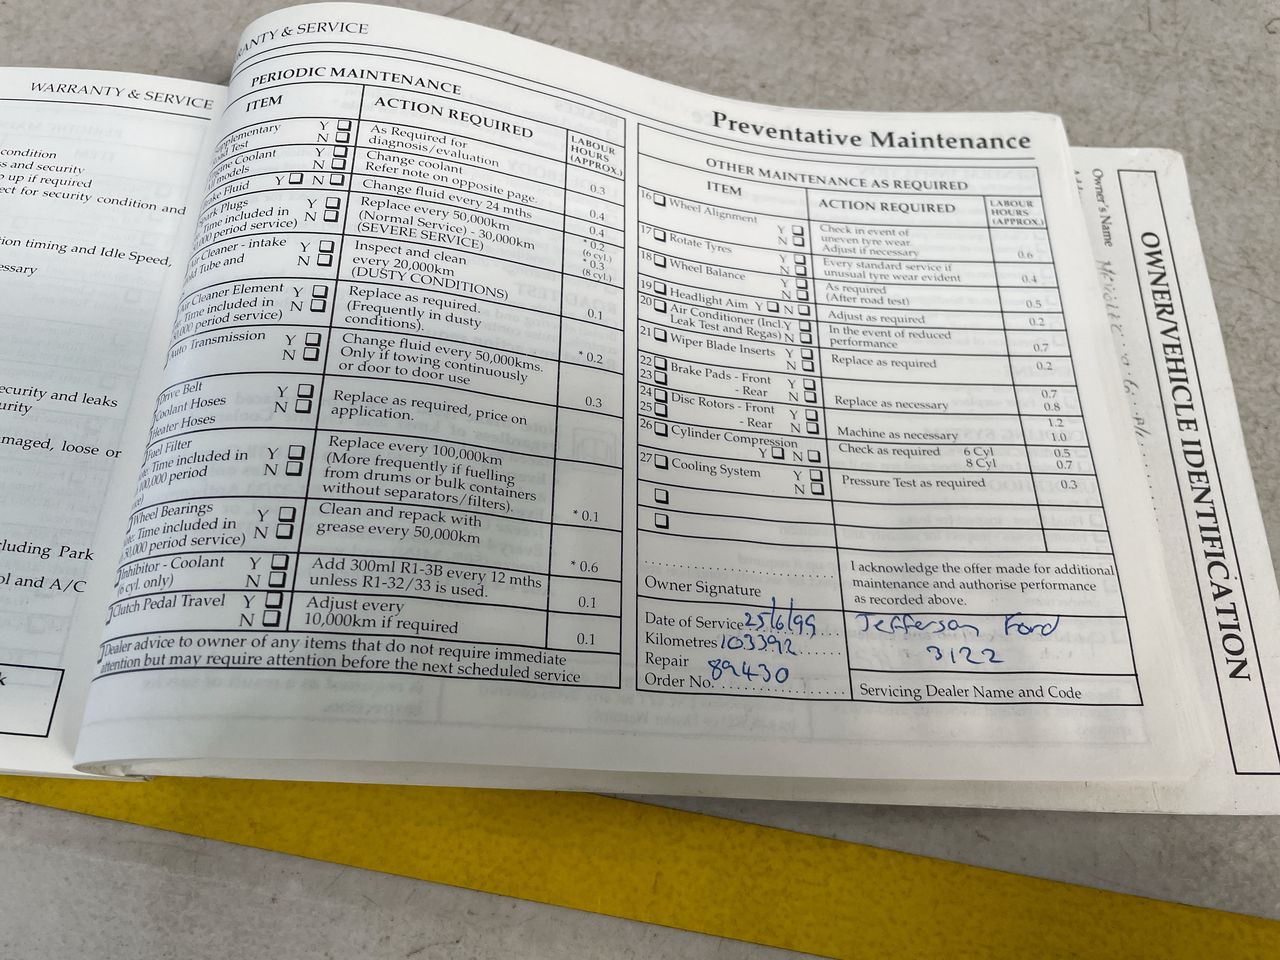 WARRANTY & SERVICE
condition
ss and security
up if required
ect for security condition and
tion timing and Idle Speed,
essary
ecurity and leaks
urity
amaged, loose or
cluding Park
ol and A/C
RANTY & SERVICE
PERIODIC MAINTENANCE
ITEM
ACTION REQUIRED
LABOUR
HOURS
(APPROX.)
upplementary Y
Road Test N
As Required for
diagnosis/evaluation
ngine Coolant Y
All models N
Change coolant
Refer note on opposite page.
0.3
rake Fluid Y N
Change fluid every 24 mths
0.4
park Plugs Y
Time included in N
,000 period service)
Replace every 50,000km
(Normal Service) - 30,000km
(SEVERE SERVICE)
0.4
* 0.2
(6 cyl.)
* 0.3
(8 cyl.)
ir Cleaner - intake Y
ld Tube and N
Inspect and clean
every 20,000km
(DUSTY CONDITIONS)
0.1
Air Cleaner Element Y
e. Time included in N
0,000 period service)
Replace as required.
(Frequently in dusty
conditions).
* 0.2
Auto Transmission Y
N
Change fluid every 50,000kms.
Only if towing continuously
or door to door use
0.3
Drive Belt Y
Coolant Hoses N
Heater Hoses
Replace as required, price on
application.
Fuel Filter Y
ote. Time included in N
100,000 period
ice)
Replace every 100,000km
(More frequently if fuelling
from drums or bulk containers
without separators/filters).
* 0.1
Wheel Bearings Y
ote: Time included in N
50,000 period service)
Clean and repack with
grease every 50,000km
* 0.6
Inhibitor - Coolant Y
(6 cyl. only) N
Add 300ml R1-3B every 12 mths
unless R1-32/33 is used.
0.1
Clutch Pedal Travel Y
N
Adjust every
10,000km if required
0.1
Dealer advice to owner of any items that do not require immediate
attention but may require attention before the next scheduled service
Preventative Maintenance
OTHER MAINTENANCE AS REQUIRED
ITEM
ACTION REQUIRED
LABOUR
HOURS
(APPROX.)
16 Wheel Alignment Y
N
Check in event of
uneven tyre wear.
Adjust if necessary
0.6
17 Rotate Tyres Y
N
Every standard service if
unusual tyre wear evident
0.4
18 Wheel Balance Y
N
As required
(After road test)
0.5
19 Headlight Aim Y N
Adjust as required
0.2
20 Air Conditioner (Incl. Y
Leak Test and Regas) N
In the event of reduced
performance
0.7
21 Wiper Blade Inserts Y
N
Replace as required
0.2
22 Brake Pads - Front Y
23 - Rear N
Replace as necessary
0.7
0.8
24 Disc Rotors - Front Y
25 - Rear N
Machine as necessary
1.2
1.0
26 Cylinder Compression
Y N
Check as required 6 Cyl 0.5
8 Cyl 0.7
27 Cooling System Y
N
Pressure Test as required
0.3
Owner Signature
I acknowledge the offer made for additional
maintenance and authorise performance
as recorded above.
Date of Service 25/6/99
Kilometres 103392
Repair
Order No. 89430
Jefferson Ford
3122
Servicing Dealer Name and Code
Owner's Name
OWNER/VEHICLE IDENTIFICATION